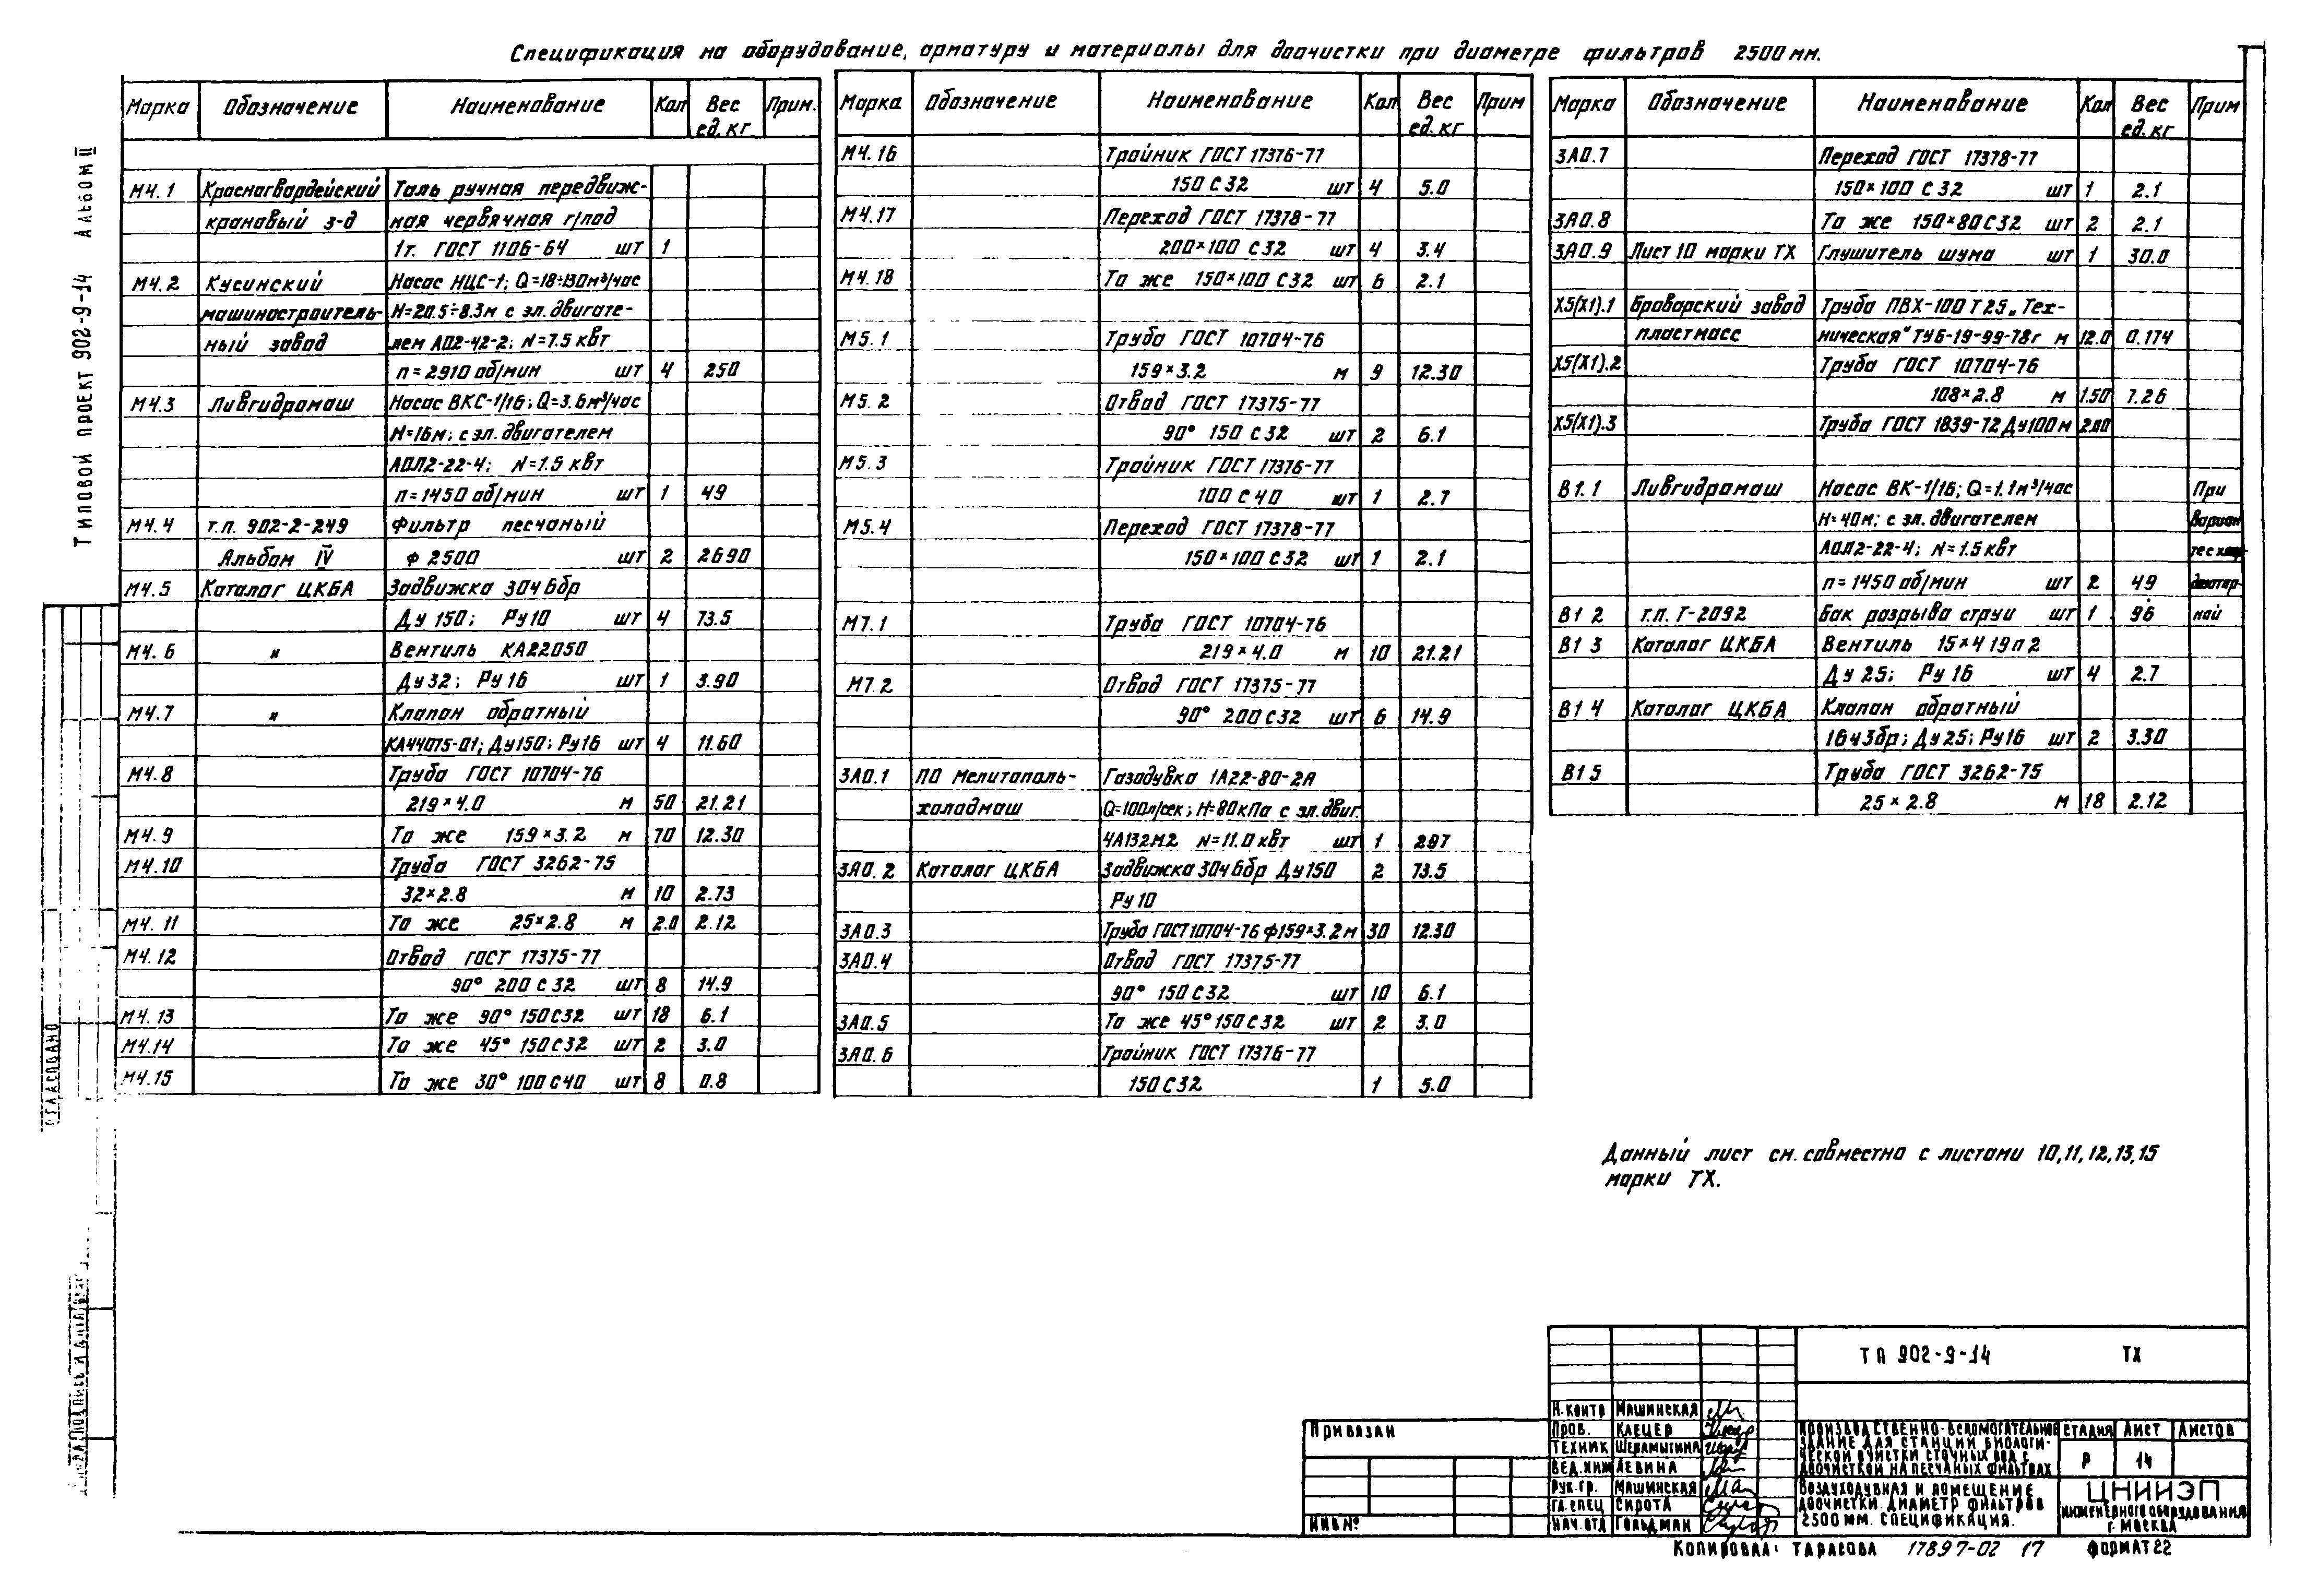 Спецификация на оборудование, арматуру и материалы для доочистки при диаметре фильтров 2500 мм.
ТИПОВОЙ ПРОЕКТ 902-9-14 АЛЬБОМ II
Марка Обозначение Наименование Кол Вес ед. кг Прим.
М4.1 Красногвардейский Таль ручная передвиж-
крановый з-д ная червячная г/под
1т. ГОСТ 1106-64 шт 1
М4.2 Кусинский Насос НЦС-1; Q=18÷130м³/час
машиностроитель- Н=20.5÷8.3м с эл. двигате-
ный завод лем АО2-42-2; N=7.5 квт
n=2910 об/мин шт 4 250
М4.3 Ливгидромаш Насос ВКС-1/16; Q=3.6м³/час
Н=16м; с эл. двигателем
АОЛ2-22-4; N=1.5 квт
n=1450 об/мин шт 1 49
М4.4 т.п. 902-2-249 Фильтр песчаный
Альбом IV ф 2500 шт 2 2690
М4.5 Каталог ЦКБА Задвижка 30ч6бр
Ду 150; Ру10 шт 4 73.5
М4.6 " Вентиль КА22050
Ду32; Ру 16 шт 1 3.90
М4.7 " Клапан обратный
КА44075-01; Ду150; Ру16 шт 4 11.60
М4.8 Труба ГОСТ 10704-76
219×4.0 м 50 21.21
М4.9 То же 159×3.2 м 70 12.30
М4.10 Труба ГОСТ 3262-75
32×2.8 м 10 2.73
М4.11 То же 25×2.8 м 2.0 2.12
М4.12 Отвод ГОСТ 17375-77
90° 200 С 32 шт 8 14.9
М4.13 То же 90° 150С32 шт 18 6.1
М4.14 То же 45° 150С32 шт 2 3.0
М4.15 То же 30° 100С40 шт 8 0.8
Марка Обозначение Наименование Кол Вес ед. кг Прим
М4.16 Тройник ГОСТ 17376-77
150 С 32 шт 4 5.0
М4.17 Переход ГОСТ 17378-77
200×100 С 32 шт 4 3.4
М4.18 То же 150×100 С 32 шт 6 2.1
М5.1 Труба ГОСТ 10704-76
159×3.2 м 9 12.30
М5.2 Отвод ГОСТ 17375-77
90° 150 С 32 шт 2 6.1
М5.3 Тройник ГОСТ 17376-77
100 С 40 шт 1 2.7
М5.4 Переход ГОСТ 17378-77
150×100 С 32 шт 1 2.1
М7.1 Труба ГОСТ 10704-76
219×4.0 м 10 21.21
М7.2 Отвод ГОСТ 17375-77
90° 200 С32 шт 6 14.9
ЗАО.1 ПО Мелитополь- Газодувка 1А22-80-2А
холодмаш Q=100л/сек; Н=80кПа с эл. двиг.
4А132М2 N=11.0 квт шт 1 297
ЗАО.2 Каталог ЦКБА Задвижка 30ч6бр Ду150 2 73.5
Ру 10
ЗАО.3 Труба ГОСТ 10704-76 ф159×3.2 м 30 12.30
ЗАО.4 Отвод ГОСТ 17375-77
90° 150 С32 шт 10 6.1
ЗАО.5 То же 45° 150 С 32 шт 2 3.0
ЗАО.6 Тройник ГОСТ 17376-77
150 С 32 1 5.0
Марка Обозначение Наименование Кол Вес ед. кг Прим
ЗАО.7 Переход ГОСТ 17378-77
150×100 С 32 шт 1 2.1
ЗАО.8 То же 150×80С32 шт 2 2.1
ЗАО.9 Лист 10 марки ТХ Глушитель шума шт 1 30.0
Х5(Х1).1 Броварский завод Труба ПВХ-100 Т 25 „Тех-
пластмасс ническая" ТУ6-19-99-78г м 12.0 0.174
Х5(Х1).2 Труба ГОСТ 10704-76
108×2.8 м 1.50 7.26
Х5(Х1).3 Труба ГОСТ 1839-72 Ду100 м 2.00
В1.1 Ливгидромаш Насос ВК-1/16; Q=1.1м³/час При
Н=40м; с эл. двигателем вариан
АОЛ2-22-4; N=1.5 квт
n=1450 об/мин шт 2 49
В1 2 т.п. Т-2092 Бак разрыва струи шт 1 96 ной
В1 3 Каталог ЦКБА Вентиль 15×4 19п2
Ду 25; Ру 16 шт 4 2.7
В1 4 Каталог ЦКБА Клапан обратный
16ч3бр; Ду25; Ру16 шт 2 3.30
В1 5 Труба ГОСТ 3262-75
25×2.8 м 18 2.12
Данный лист см. совместно с листами 10,11,12,13,15
марки ТХ.
ТП 902-9-14 ТХ
Н.контр Машинская
Пров. Клецер
Техник
Вед.инж Левина
Рук.гр. Машинская
Гл.спец Сирота
Нач.отд Гольдман
Производственно-вспомогательное
здание для станции биологи-
ческой очистки сточных вод с
доочисткой на песчаных фильтрах
Стадия Лист Листов
Р 14
Воздуходувная и помещение
доочистки. Диаметр фильтров
2500мм. Спецификация.
ЦНИИЭП
инженерного оборудования
г. Москва
Привязан
Инв №
Копировал: Тарасова 17897-02 17 Формат 22